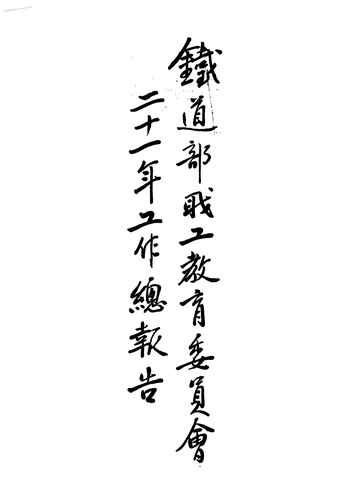 鐵道部職工教育委員會
二十一年工作總報告